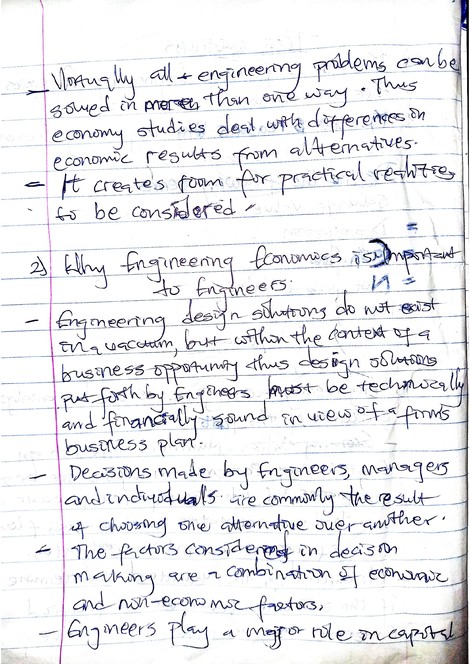 - Virtually all engineering problems can be
solved in more than one way. Thus
economy studies deal with differences in
economic results from alternatives.
= It creates room for practical realities
to be considered.
2) Why Engineering Economics is important
to Engineers.
- Engineering design solutions do not exist
in a vacuum, but within the context of a
business opportunity thus design solutions
put forth by Engineers must be technically
and financially sound in view of a firms
business plan.
- Decisions made by Engineers, managers
and individuals are commonly the result
of choosing one alternative over another.
- The factors considered in decision
making are a combination of economic
and non-economic factors.
- Engineers play a major role in capital